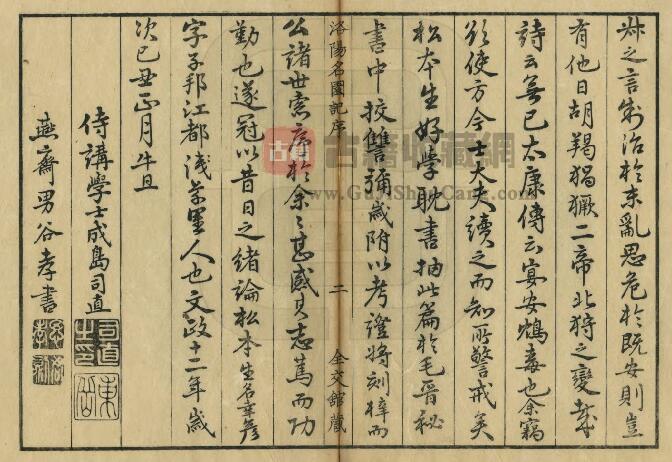 叔之言制治於未亂思危於既安則豈
有他日胡羯猖獗二帝北狩之變哉
詩云無已太康傳云宴安鴆毒也余竊
欲使方今士大夫讀之而知所警戒矣
松本生好學耽書抽此篇於毛晉秘
書中挍讐彌歲附以考證將刻梓而
洛陽名園記序
二
全交館藏
公諸世索序於余々甚感其志篤而功
勤也遂冠以昔日之緒論松本生名幸彥
字子邦江都淺草里人也文政十二年歲
次己丑正月牛旦
侍講學士成島司直
燕齋男谷孝書
司直之印
東岳
古籍收藏網
www.GuJiShouCang.com